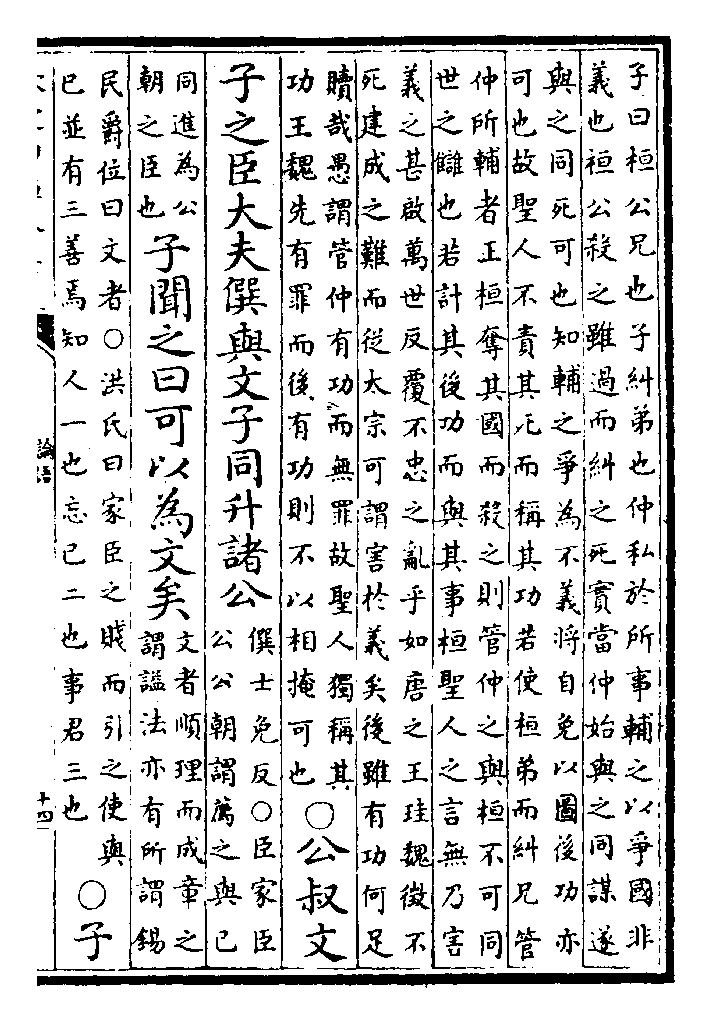 子曰桓公兄也子糾弟也仲私於所事輔之以爭國非
義也桓公殺之雖過而糾之死實當仲始與之同謀遂
與之同死可也知輔之爭為不義將自免以圖後功亦
可也故聖人不責其死而稱其功若使桓弟而糾兄管
仲所輔者正桓奪其國而殺之則管仲之與桓不可同
世之讎也若計其後功而與其事桓聖人之言無乃害
義之甚啟萬世反覆不忠之亂乎如唐之王珪魏徵不
死建成之難而從太宗可謂害於義矣後雖有功何足
贖哉愚謂管仲有功而無罪故聖人獨稱其
功王魏先有罪而後有功則不以相掩可也
○公叔文
子之臣大夫僎與文子同升諸公
僎士免反○臣家臣
公公朝謂薦之與已
同進為公
朝之臣也
子聞之曰可以為文矣
文者順理而成章之
謂謚法亦有所謂錫
民爵位曰文者○洪氏曰家臣之賤而引之使與
已並有三善焉知人一也忘已二也事君三也
○子
論語
十四